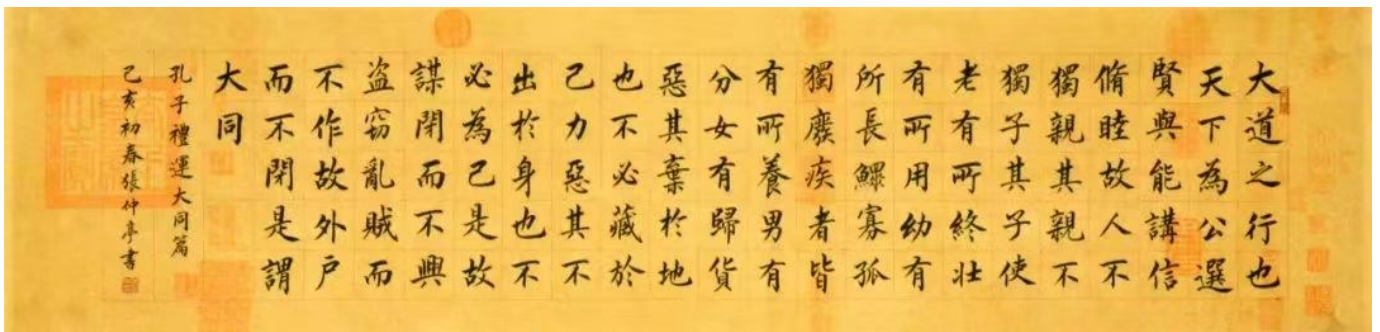 大道之行也
天下為公選
賢與能講信
脩睦故人不
獨親其親不
獨子其子使
老有所終壯
有所用幼有
所長鰥寡孤
獨廢疾者皆
有所養男有
分女有歸貨
惡其棄於地
也不必藏於
己力惡其不
出於身也不
必為己是故
謀閉而不興
盜竊亂賊而
不作故外戶
而不閉是謂
大同
孔子禮運大同篇
己亥初春張仲亭書